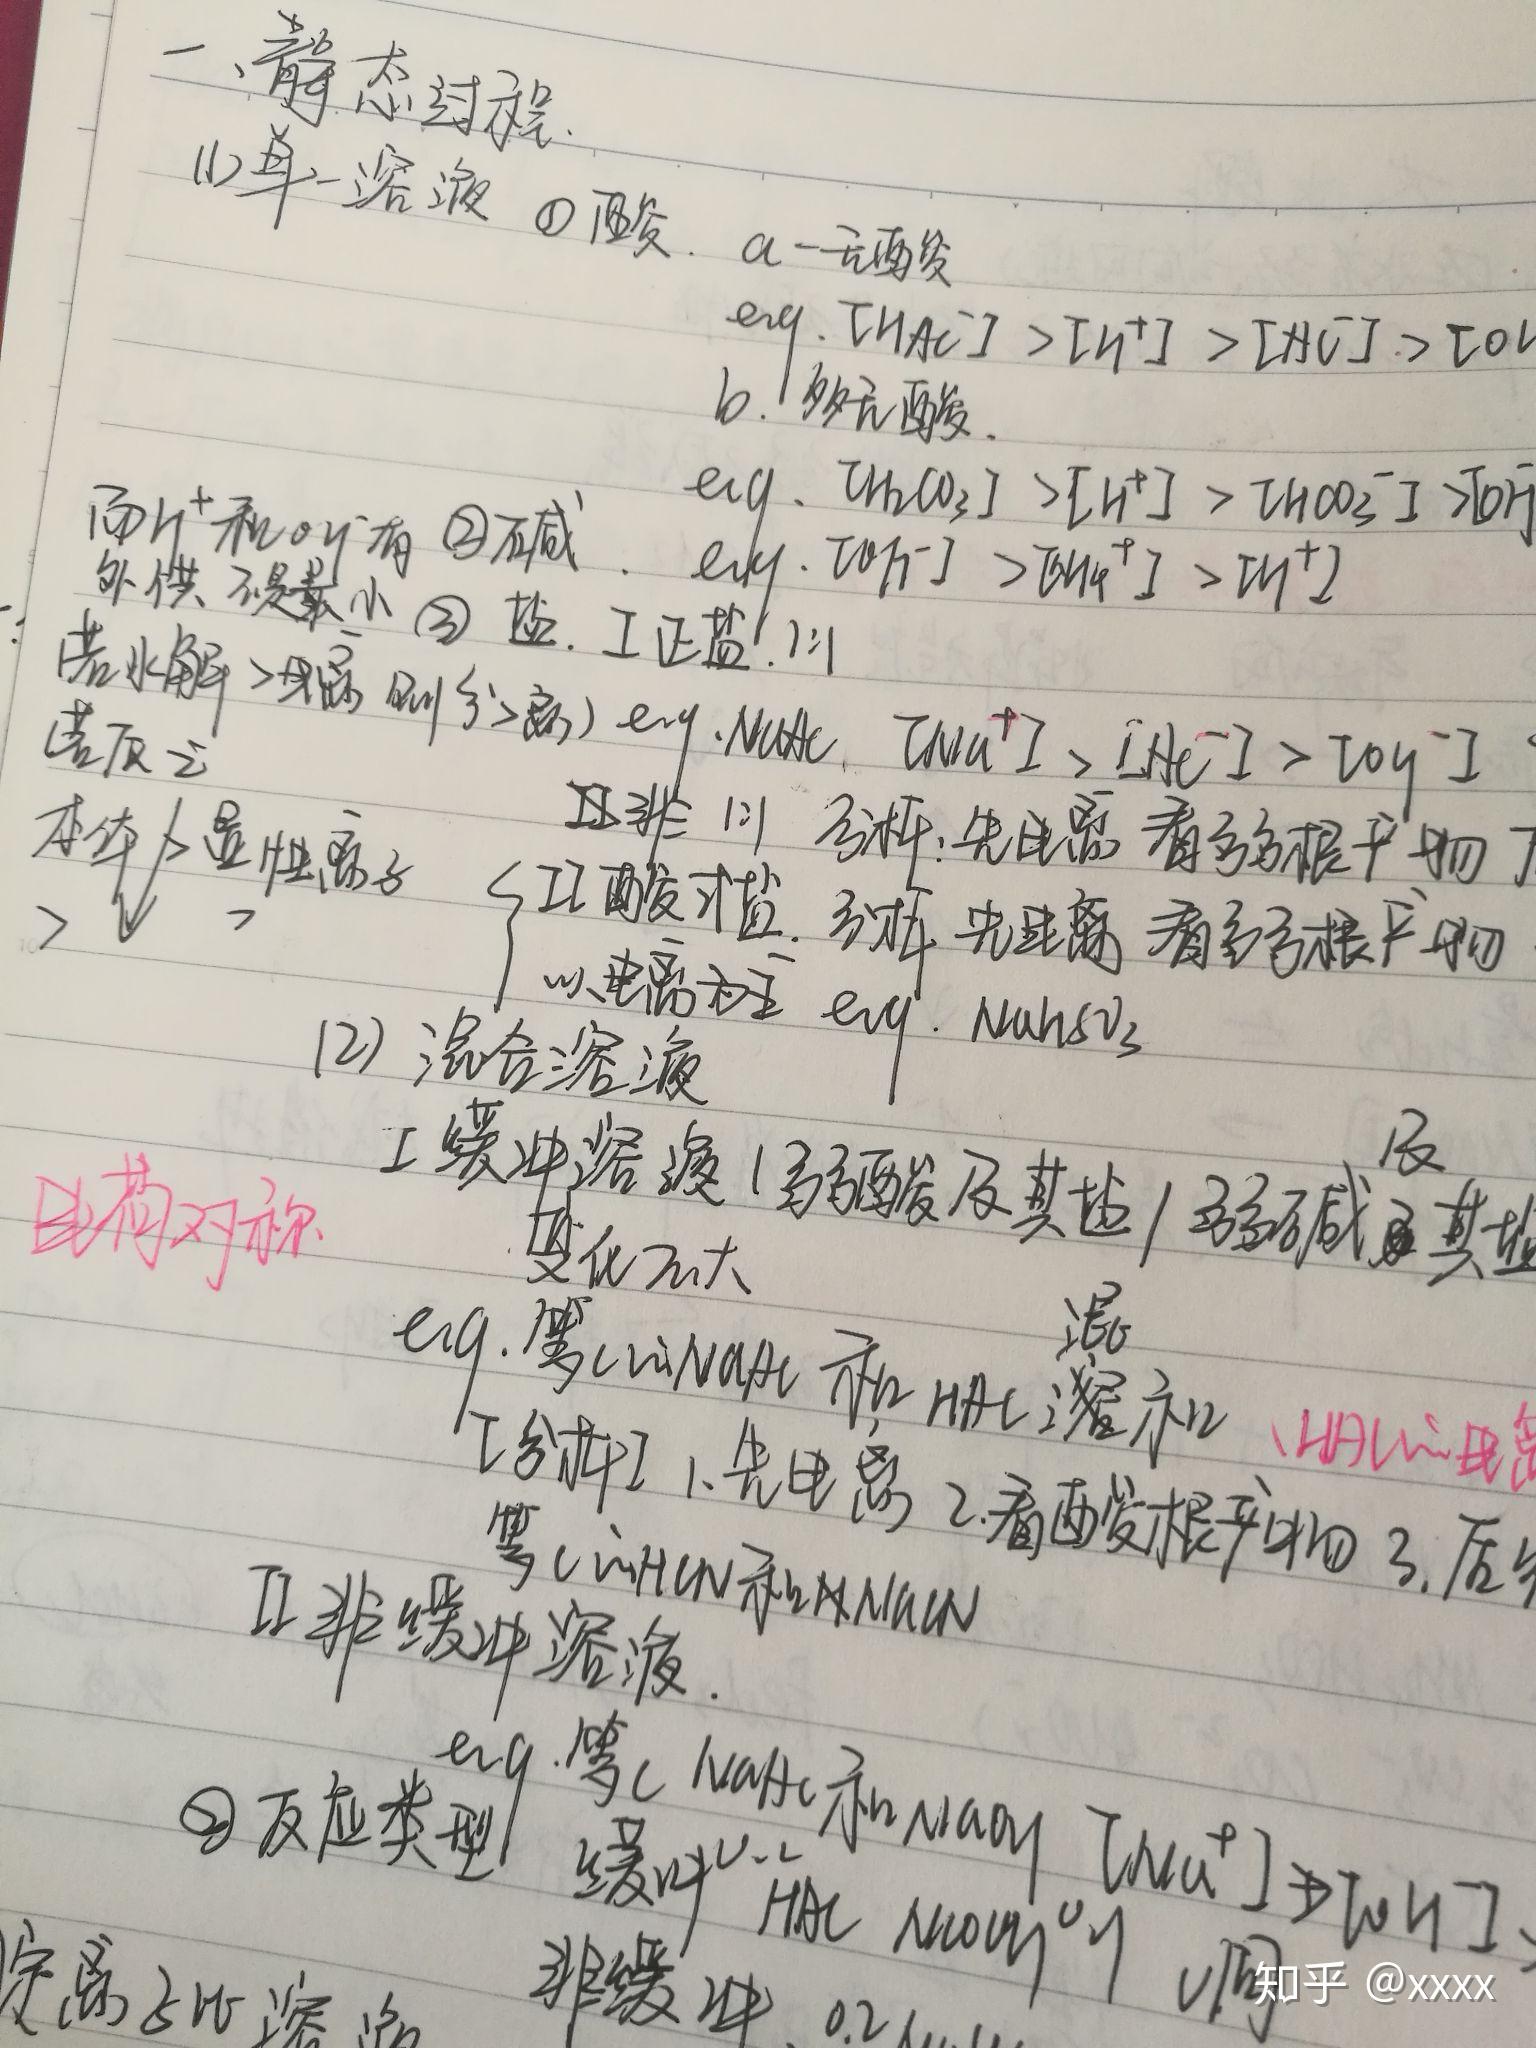 一、静态过程.
(1)单一溶液 ①酸. a 一元酸
eg. [HAc] > [H⁺] > [Ac⁻] > [OH
b. 多元酸.
eg. [H₂CO₃] > [H⁺] > [HCO₃⁻] > [OH⁻]
而H⁺和OH⁻有 ②碱. eg. [OH⁻] > [NH₄⁺] > [H⁺]
外供 不是最小 ③ 盐. I 正盐. 1:1
若水解 > 电离 则(分>离) eg. NaAc. [Na⁺] > [Ac⁻] > [OH⁻]
若反之
II 非 1:1 分析: 先电离 看弱根产物
本体 > 显性离子
II 酸式盐. 分析 先电离 看弱根产物
> >
以电离为主 eg. NaHSO₃
(2) 混合溶液
I 缓冲溶液 (弱酸及其盐/弱碱及其盐
电荷对称
变化不大
eg. 等c的NaAc 和 HAc 混 溶和
(HAc的电离
[分析] 1. 先电离 2. 看酸根产物 3. 后
等c的HCN和NaCN
II 非缓冲溶液.
eg. 等c NaAc和NaOH [Na⁺] > [OH⁻]
② 反应类型 缓冲 HAc
非缓冲. 0.2
溶液
知乎 @xxxx